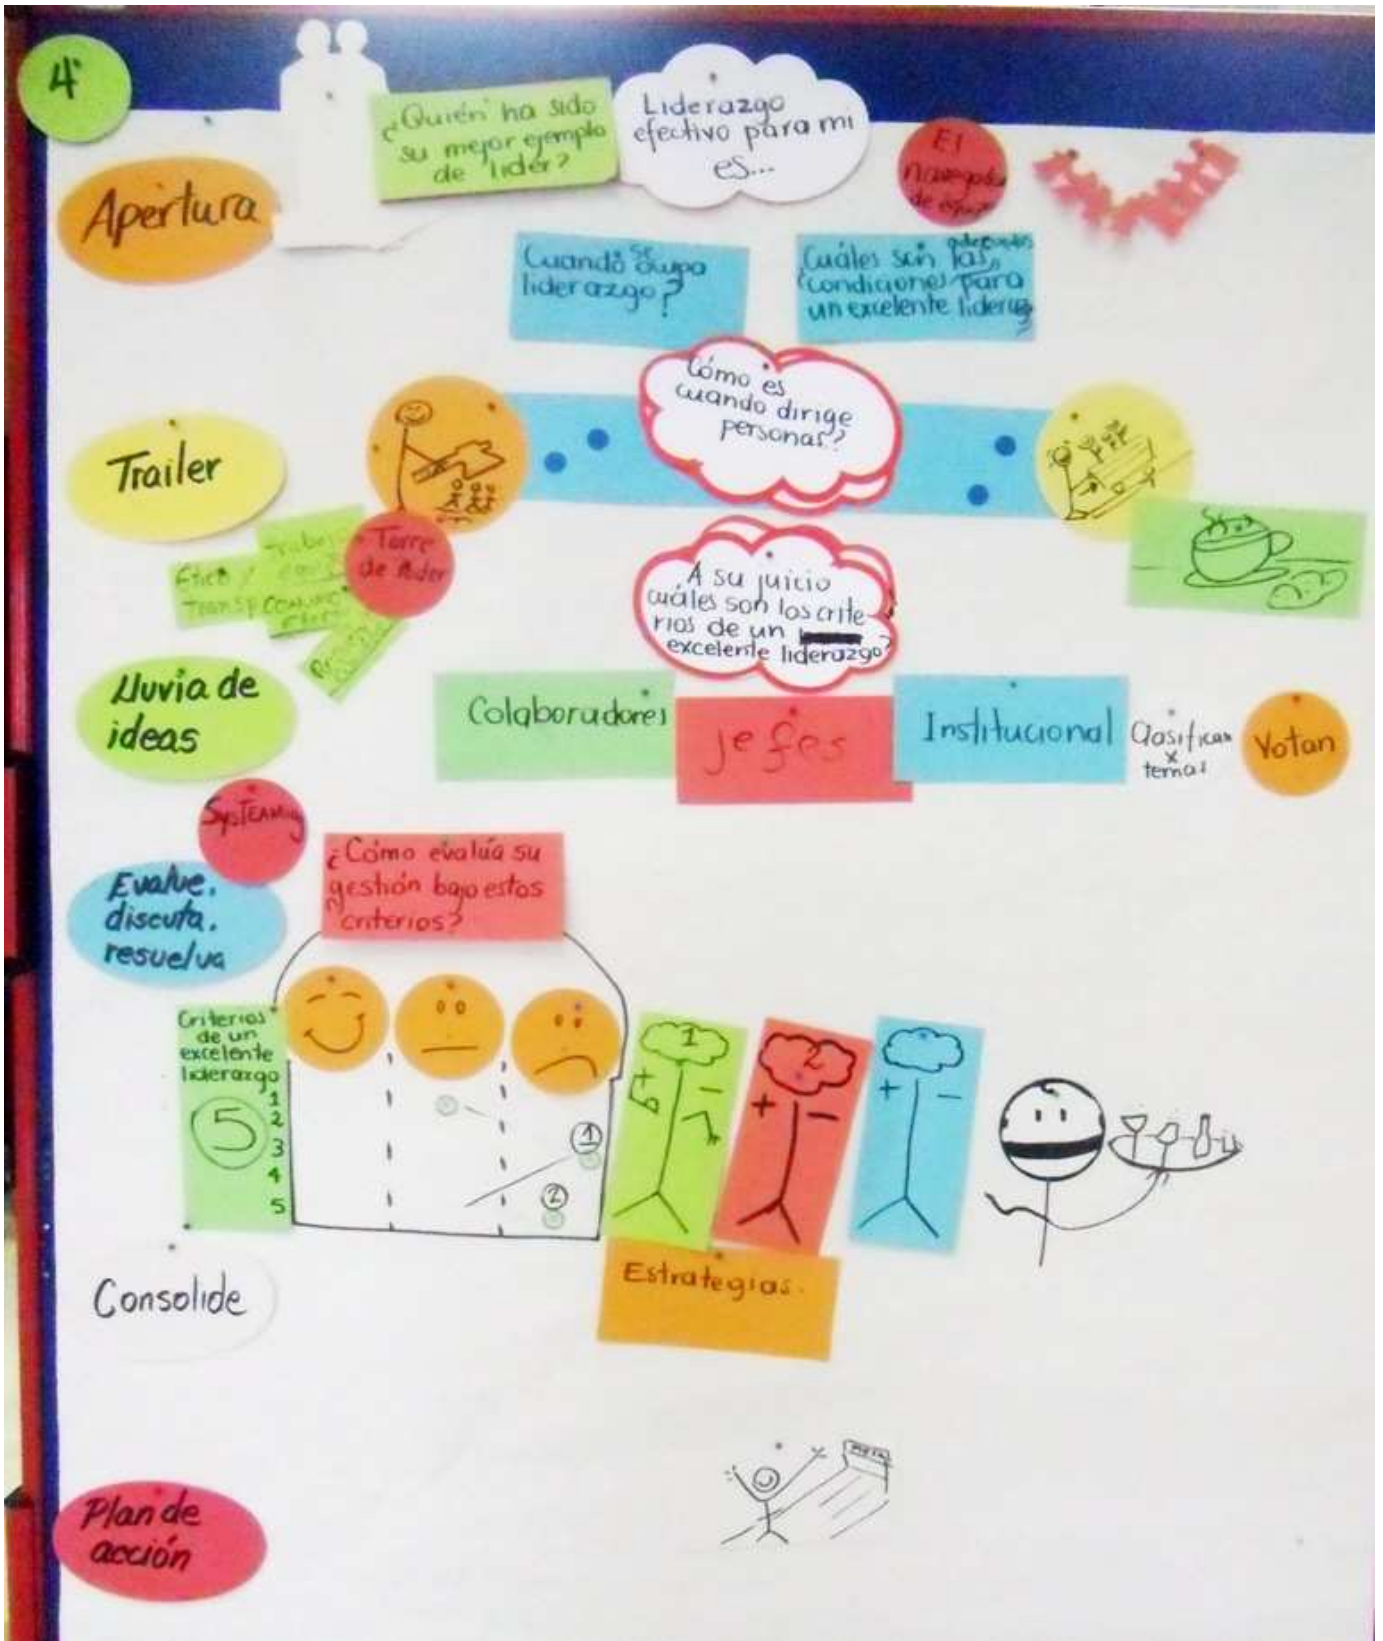 4
¿Quién ha sido
su mejor ejemplo
de lider?
Liderazgo
efectivo para mi
es...
El
navegador
de equipo
Apertura
Cuando se ocupa
liderazgo?
Cuáles son las adecuadas
¿condiciones para
un excelente lideraz
Cómo es
cuando dirige
personas?
Trailer
Torre
de lider
Trabajo
Etico y
Transp
A su juicio
cuáles son los crite
rios de un
excelente liderazgo?
Lluvia de
ideas
Colaboradores
jefes
Institucional
Clasifican
x
temas
Votan
SysTEAMing
¿Cómo evalúa su
gestión bajo estos
criterios?
Evalue,
discuta,
resuelva
Criterios
de un
excelente
liderazgo
1
2
5
3
4
5
1
2
1
+ -
2
+ -
+ -
Estrategias.
Consolide
META
Plan de
acción